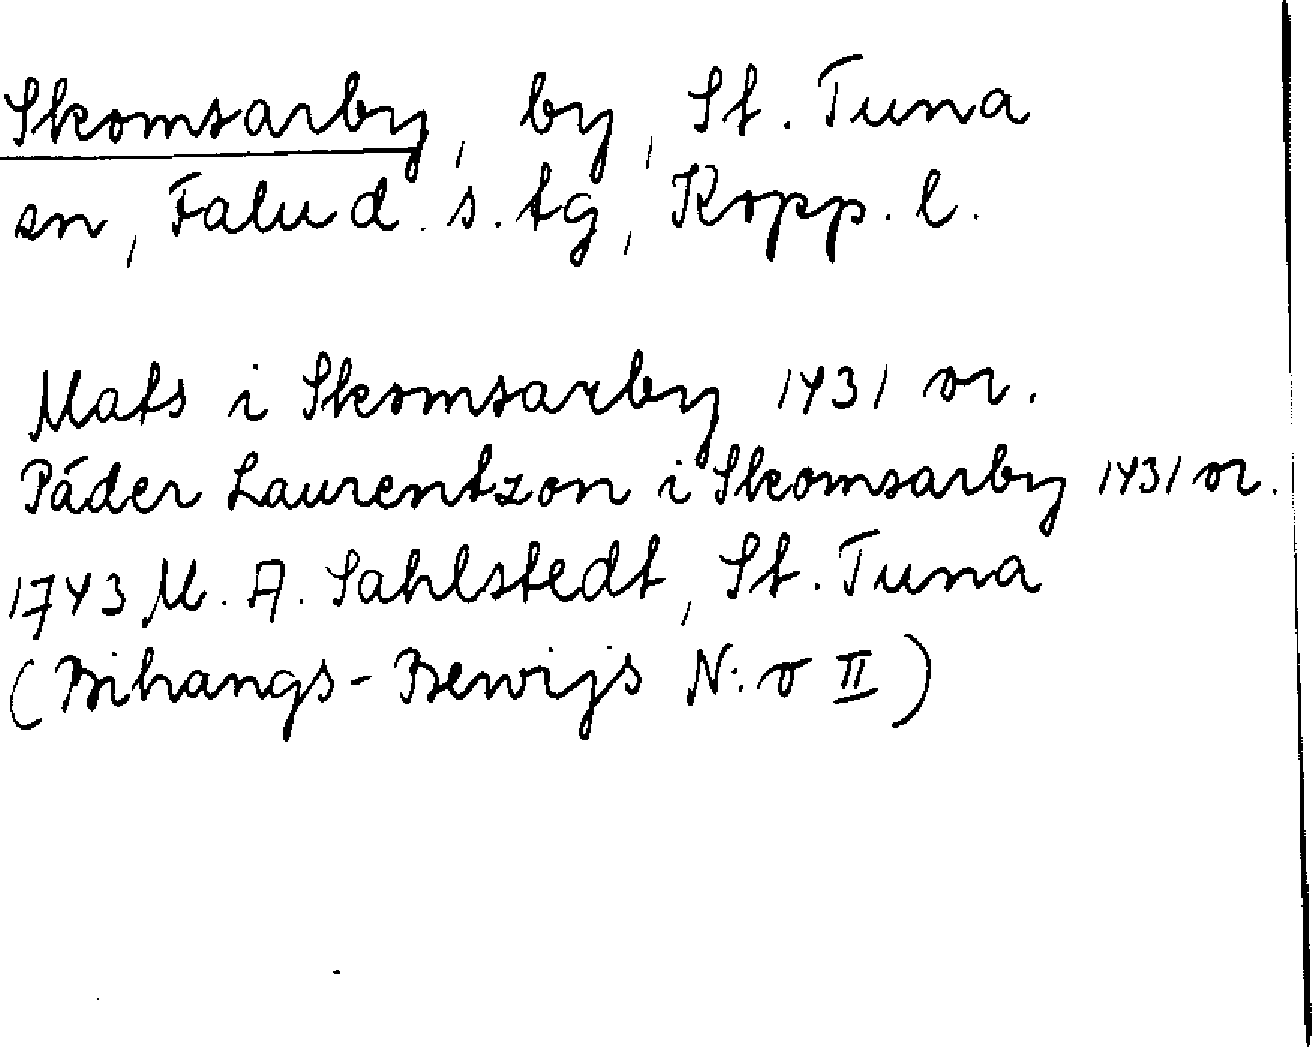 Skomsarby, by, St. Tuna
sn, Falu d. s. tg, Kopp. l.
Mats i Skomsarby 1431 or.
Páder Laurentzon i Skomsarby 1431 or.
1743 M. A. Sahlstedt, St. Tuna
(Bihangs-Bewijs N:o II)